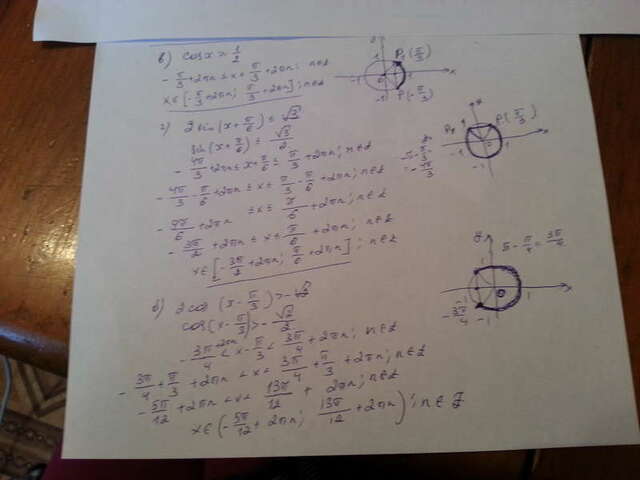 в) cos x ≥ 1/2
-π/3 + 2πn ≤ x ≤ π/3 + 2πn; n∈Z
x∈[-π/3 + 2πn; π/3 + 2πn]; n∈Z
P₁(π/3)
P(-π/3)
г) 2sin(x+π/6) ≤ √3
sin(x+π/6) ≤ √3/2
-4π/3 + 2πn ≤ x+π/6 ≤ π/3 + 2πn; n∈Z
-4π/3 - π/6 + 2πn ≤ x ≤ π/3 - π/6 + 2πn; n∈Z
-9π/6 + 2πn ≤ x ≤ π/6 + 2πn; n∈Z
-3π/2 + 2πn ≤ x ≤ π/6 + 2πn; n∈Z
x∈[-3π/2 + 2πn; π/6 + 2πn]; n∈Z
P(π/3)
= -4π/3
π - π/4 = 3π/4
-3π/4
б) 2cos(x-π/3) > -√2
cos(x-π/3) > -√2/2
-3π/4 + 2πn < x-π/3 < 3π/4 + 2πn; n∈Z
-3π/4 + π/3 + 2πn < x < 3π/4 + π/3 + 2πn; n∈Z
-5π/12 + 2πn < x < 13π/12 + 2πn; n∈Z
x∈(-5π/12 + 2πn; 13π/12 + 2πn); n∈Z